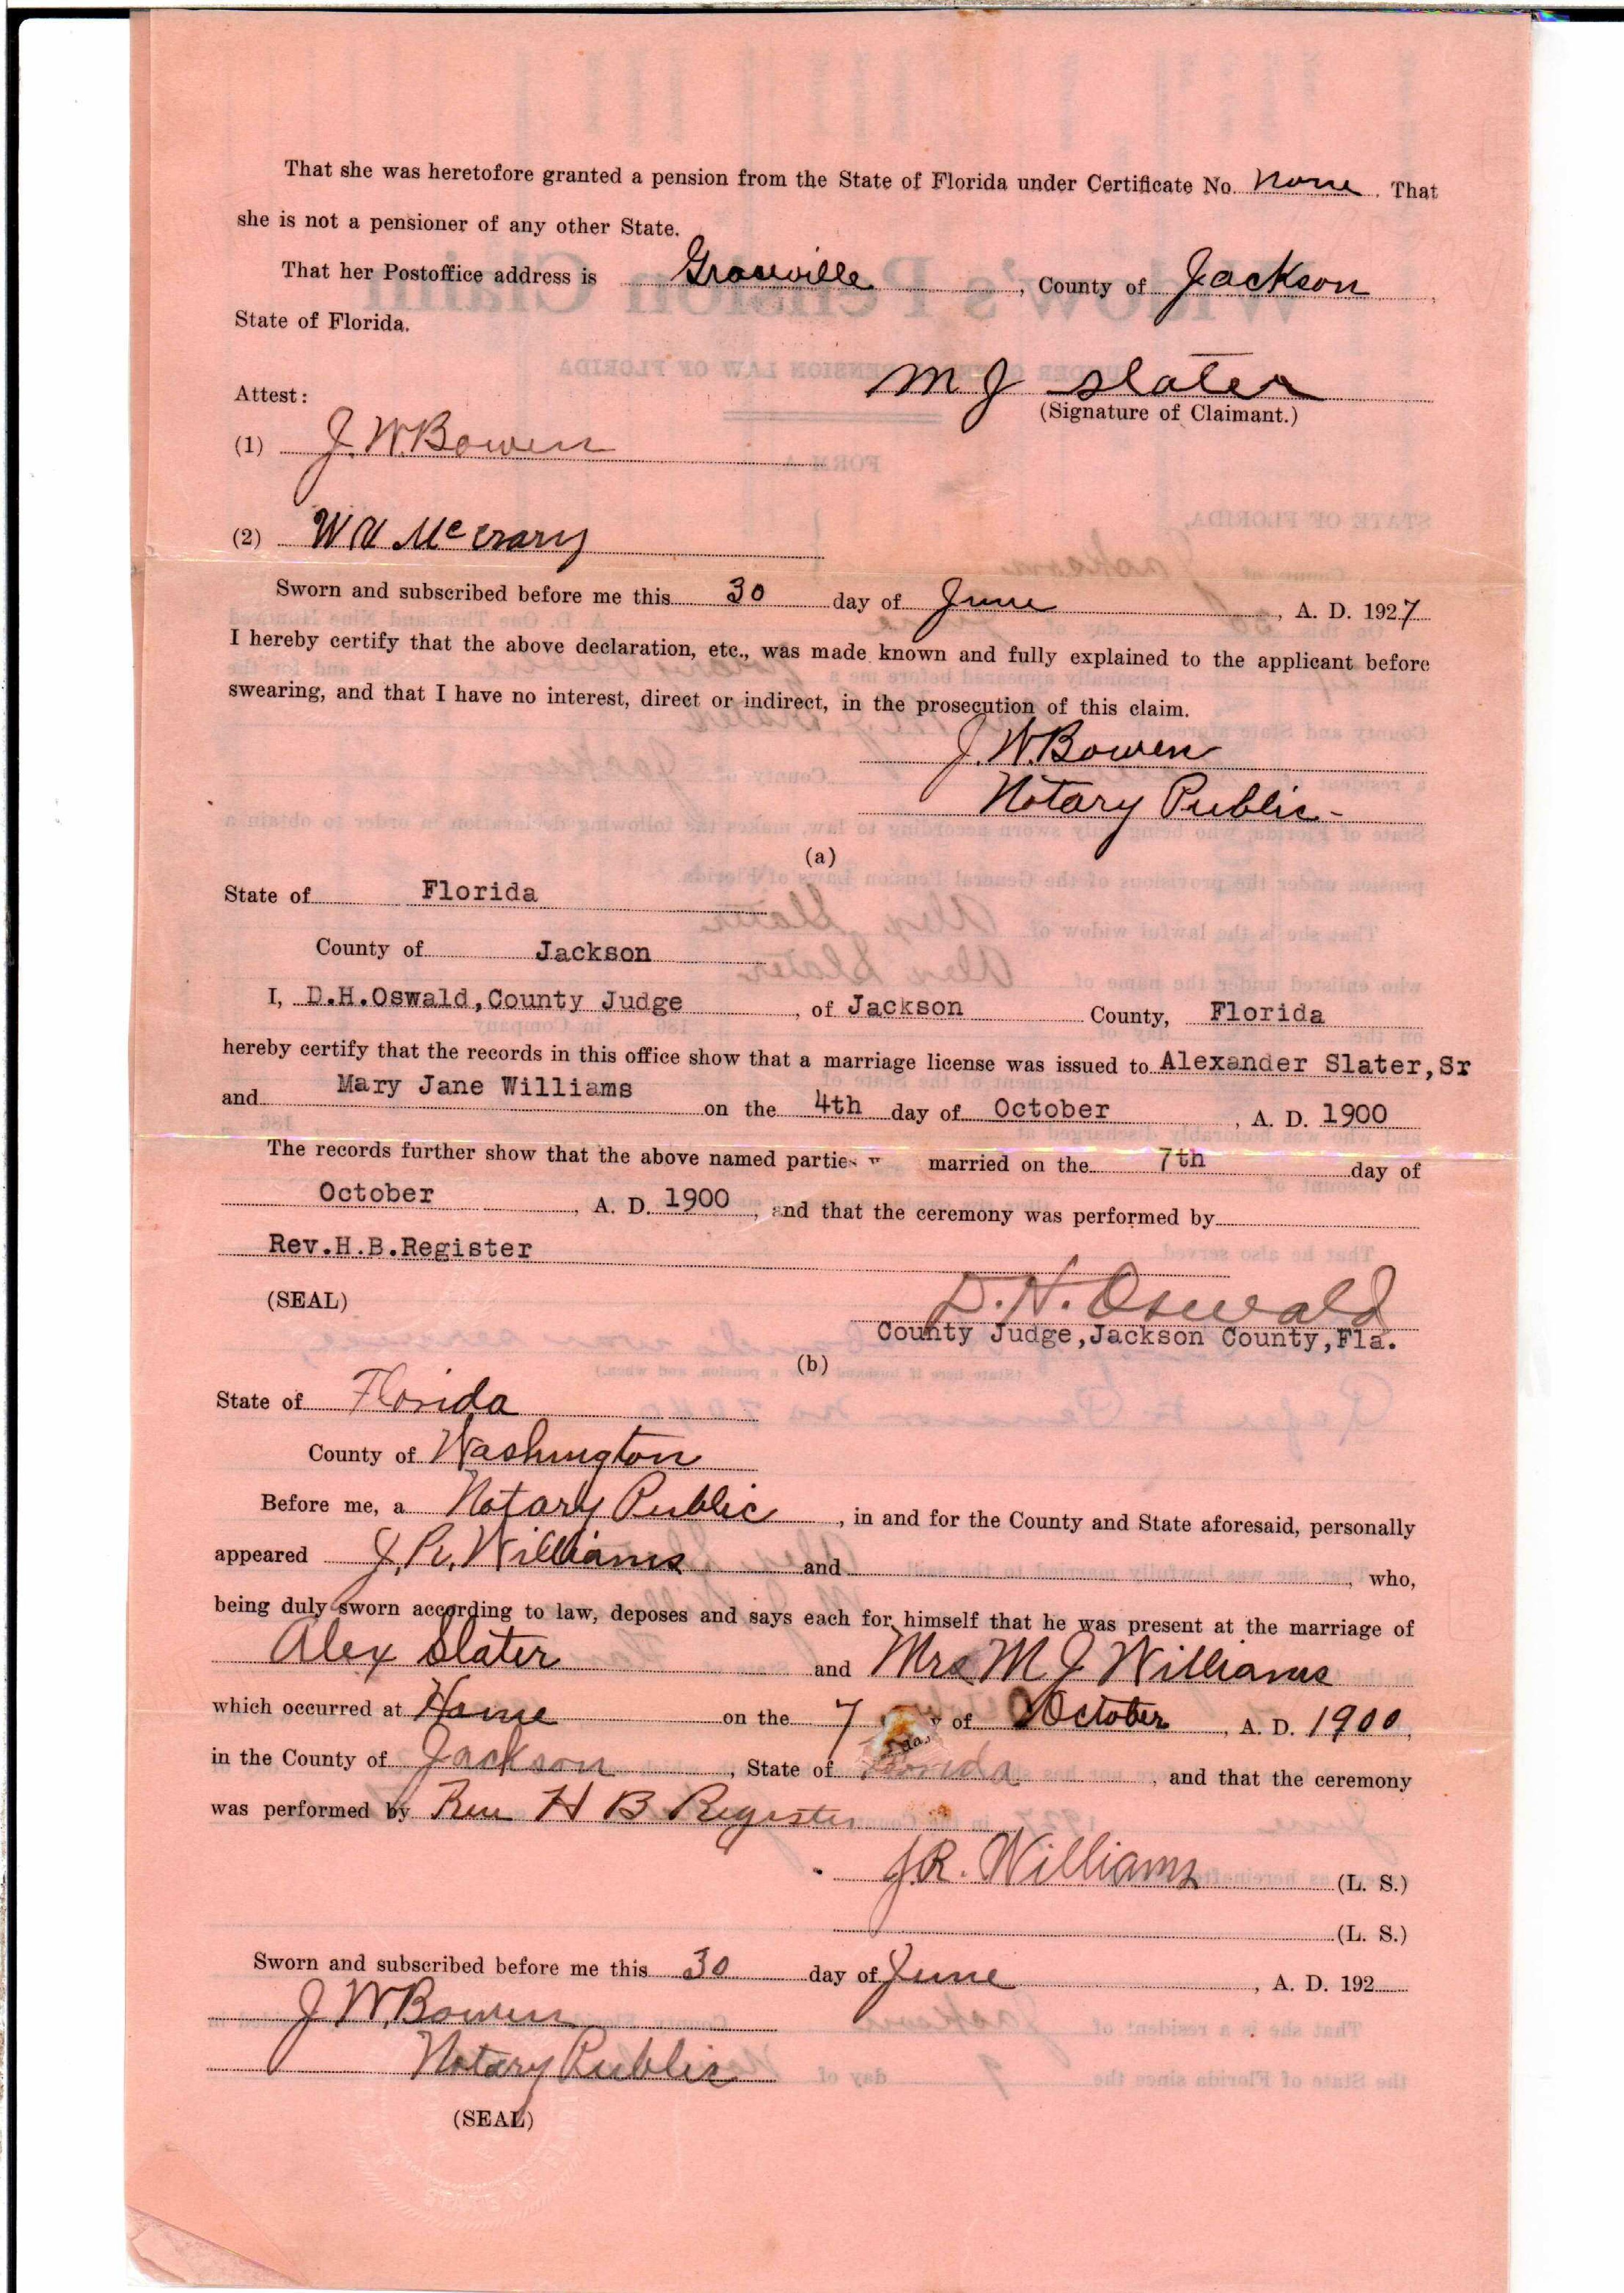 That she was heretofore granted a pension from the State of Florida under Certificate No. none. That
she is not a pensioner of any other State.
That her Postoffice address is Graceville, County of Jackson,
State of Florida.
M J Slater
Attest:
(Signature of Claimant.)
(1) J. W. Bowen
(2) W N McCrary
Sworn and subscribed before me this 30 day of June, A. D. 1927
I hereby certify that the above declaration, etc., was made known and fully explained to the applicant before
swearing, and that I have no interest, direct or indirect, in the prosecution of this claim.
J. W. Bowen
Notary Public-
(a)
State of Florida
County of Jackson
I, D.H.Oswald, County Judge, of Jackson County, Florida
hereby certify that the records in this office show that a marriage license was issued to Alexander Slater, Sr
and Mary Jane Williams on the 4th day of October, A. D. 1900
The records further show that the above named parties married on the 7th day of
October, A. D. 1900, and that the ceremony was performed by
Rev.H.B.Register
(SEAL)
D. H. Oswald
County Judge, Jackson County, Fla.
(b)
State of Florida
County of Washington
Before me, a Notary Public, in and for the County and State aforesaid, personally
appeared J. R. Williams and, who,
being duly sworn according to law, deposes and says each for himself that he was present at the marriage of
Alex Slater and Mrs M J Williams
which occurred at Home on the 7 of October, A. D. 1900,
in the County of Jackson, State of Florida, and that the ceremony
was performed by Rev H B Register
J. R. Williams (L. S.)
(L. S.)
Sworn and subscribed before me this 30 day of June, A. D. 192
J. W. Bowen
Notary Public
(SEAL)